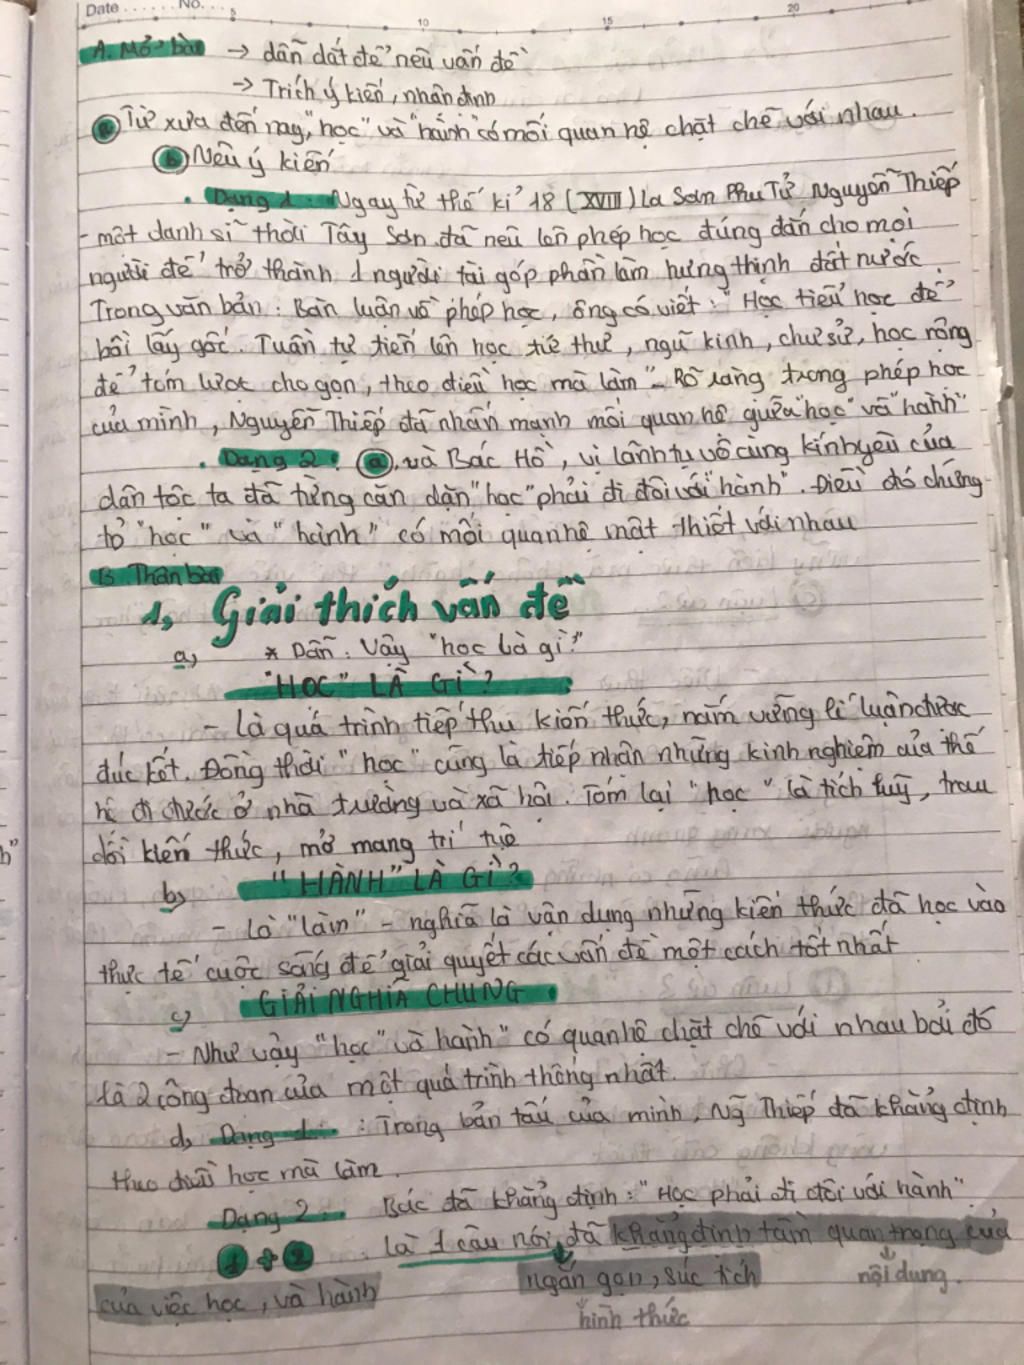 Date ...... No. ...
5 10 15 20
A. Mở bài → dẫn dắt để nêu vấn đề
→ Trích ý kiến, nhận định
a Từ xưa đến nay, "học" và "hành" có mối quan hệ chặt chẽ với nhau.
b Nêu ý kiến
. Dạng 1: Ngay từ thế kỉ 18 (XVIII) La Sơn Phu Tử Nguyễn Thiếp
- một danh sĩ thời Tây Sơn đã nêu lên phép học đúng đắn cho mọi
người để trở thành 1 người tài góp phần làm hưng thịnh đất nước.
Trong văn bản: Bàn luận về phép học, ông có viết: "Học tiểu học để
bồi lấy gốc. Tuần tự tiến lên học tứ thư, ngũ kinh, chư sử, học rộng
để tóm lược cho gọn, theo điều học mà làm". Rõ ràng trong phép học
của mình, Nguyễn Thiếp đã nhấn mạnh mối quan hệ giữa "học" và "hành"
. Dạng 2: a, và Bác Hồ, vị lãnh tụ vô cùng kính yêu của
dân tộc ta đã từng căn dặn "học" phải đi đôi với "hành". Điều đó chứng
tỏ "học" và "hành" có mối quan hệ mật thiết với nhau
B. Thân bài
1, Giải thích vấn đề
a, * Dẫn: Vậy "học là gì?"
"HỌC" LÀ GÌ?
- Là quá trình tiếp thu kiến thức, nắm vững lí luận được
đúc kết. Đồng thời "học" cũng là tiếp nhận những kinh nghiệm của thế
hệ đi trước ở nhà trường và xã hội. Tóm lại "học" là tích luỹ, trau
dồi kiến thức, mở mang trí tuệ
b"
b, "HÀNH" LÀ GÌ?
- Là "làm" - nghĩa là vận dụng những kiến thức đã học vào
thực tế cuộc sống để giải quyết các vấn đề một cách tốt nhất
c, GIẢI NGHĨA CHUNG
- Như vậy "học" và hành" có quan hệ chặt chẽ với nhau bởi đó
là 2 công đoạn của một quá trình thống nhất.
d, Dạng 1: : Trong bản tấu của mình, Ng Thiếp đã khẳng định
theo điều học mà làm.
Dạng 2: Bác đã khẳng định: "Học phải đi đôi với hành"
1 + 2 . là 1 câu nói đã khẳng định tầm quan trọng của
ngắn gọn, súc tích nội dung.
của việc học, và hành
hình thức